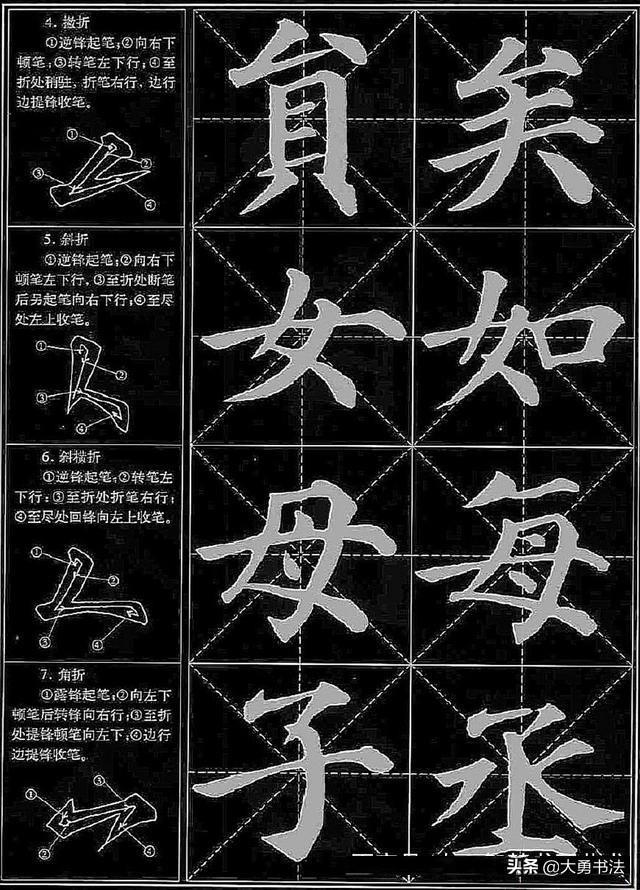 4. 撇折
①逆锋起笔;②向右下
顿笔;③转笔左下行;④至
折处稍驻，折笔右行，边行
边提锋收笔。
① ② ③ ④
員 矣
5. 斜折
①逆锋起笔;②向右下
顿笔左下行，③至折处断笔
后另起笔向右下行;④至尽
处左上收笔。
① ② ③ ④
女 如
6. 斜横折
①逆锋起笔;②转笔左
下行;③至折处折笔右行;
④至尽处回锋向左上收笔。
① ② ③ ④
母 每
7. 角折
①露锋起笔;②向左下
顿笔后转锋向右行;③至折
处提锋顿笔向左下;④边行
边提锋收笔。
① ② ③ ④
子 丞
头条 @大勇书法